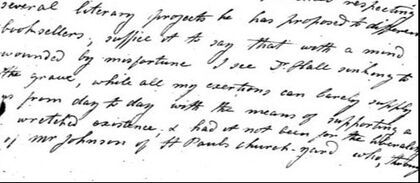 respecting
several literary projects he has proposed to different
booksellers; suffice it to say that with a mind
wounded by misfortune I see Dr Hall sinking to
the grave, while all my exertions can barely supply
us from day to day with the means of supporting a
wretched existence; & had it not been for the liberality
of Mr Johnson of St Pauls church-yard who,